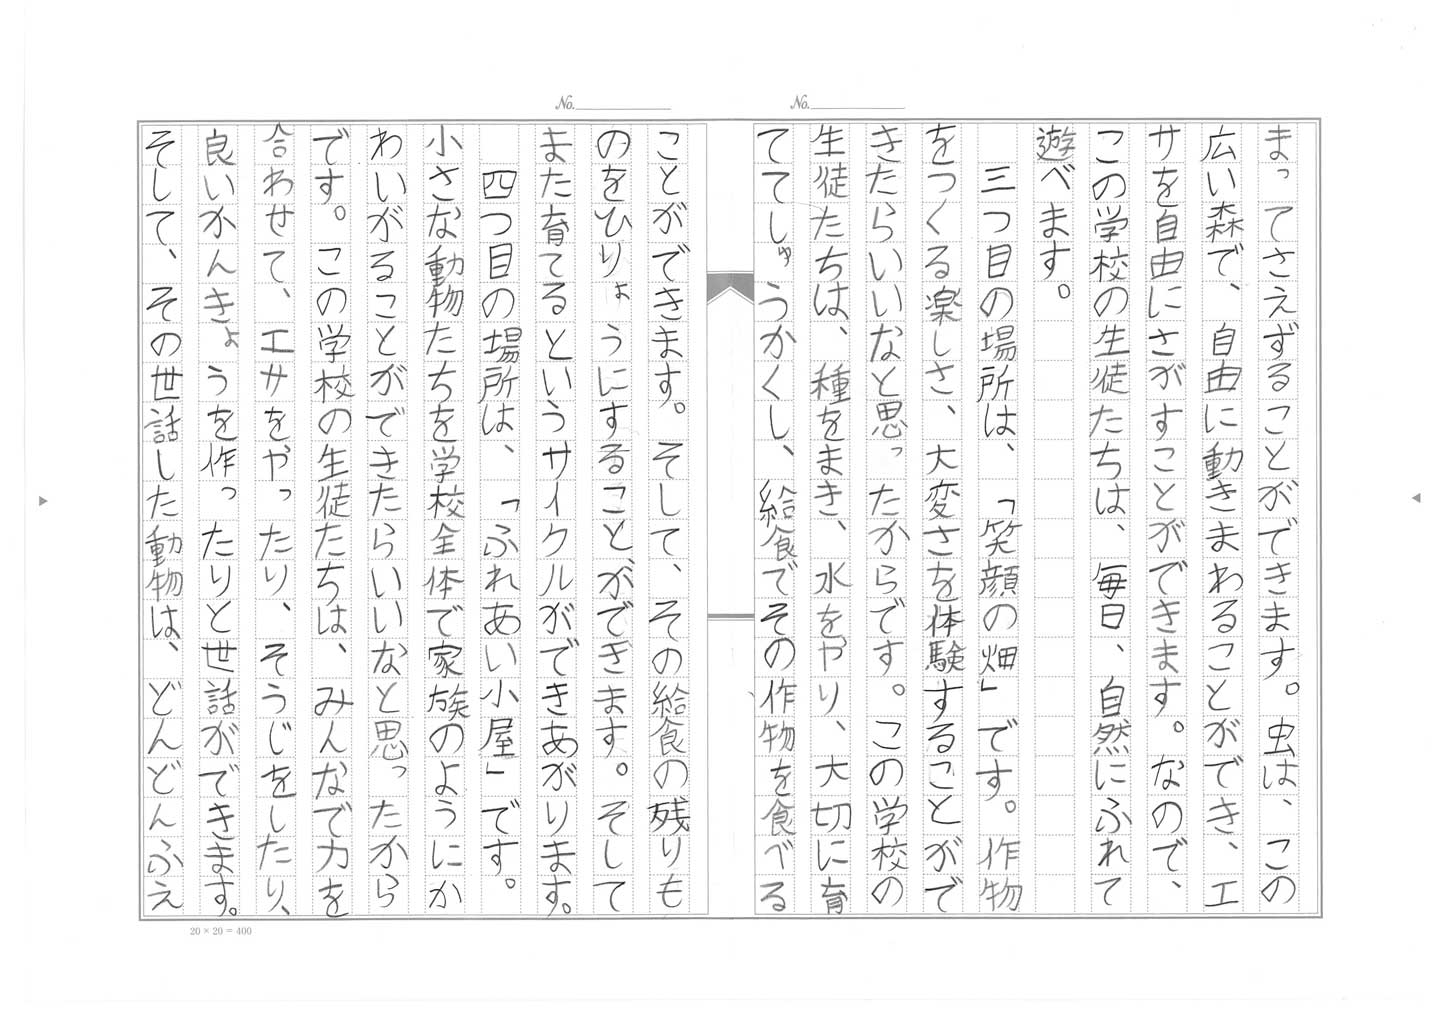 No.
No.
まってさえずることができます。虫は、この
広い森で、自由に動きまわることができ、エ
サを自由にさがすことができます。なので、
この学校の生徒たちは、毎日、自然にふれて
遊べます。
三つ目の場所は、「笑顔の畑」です。作物
をつくる楽しさ、大変さを体験することがで
きたらいいなと思ったからです。この学校の
生徒たちは、種をまき、水をやり、大切に育
ててしゅうかくし、給食でその作物を食べる
ことができます。そして、その給食の残りも
のをひりょうにすることができます。そして
また育てるというサイクルができあがります。
四つ目の場所は、「ふれあい小屋」です。
小さな動物たちを学校全体で家族のようにか
わいがることができたらいいなと思ったから
です。この学校の生徒たちは、みんなで力を
合わせて、エサをやったり、そうじをしたり、
良いかんきょうを作ったりと世話ができます。
そして、その世話した動物は、どんどんふえ
20 × 20 = 400